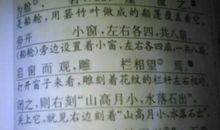 是，用箬竹叶做成的船篷盖着它。
旁开 小窗，左右各四，共八扇
(船舱)旁边设置着小窗，左右各四扇，一共八扇。
启窗而观，雕栏相望焉
打开窗子来看，雕刻着花纹的栏杆左右相对。
闭之，则右刻“山高月小，水落石出”
关上它，就见右边刻着“山高月小，水落石出”